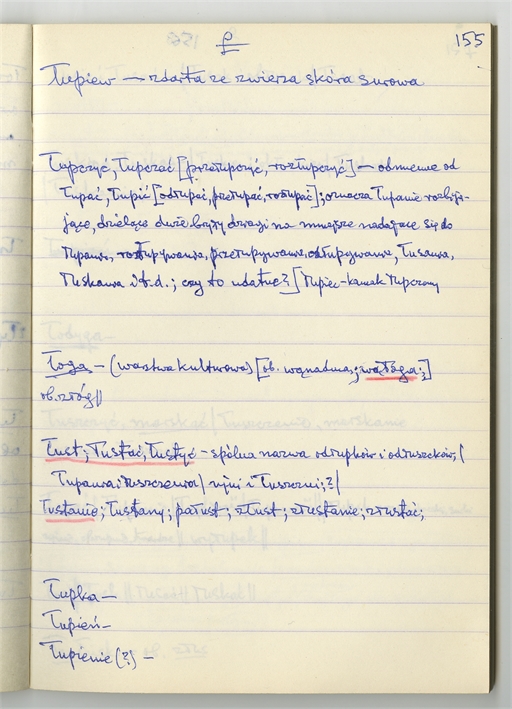 Ł 155
Łupień — zdarta ze zwierza skóra surowa
Łupczyć, Łupczać [przełupczyć, rozłupczyć] — odmienne od
Łupać, Łupić [odłupać, przełupać, rozłupać]; oznacza Łupanie rozbija-
jące, dzielące duże bryły na mniejsze nadające się do
Łupania, rozłupywania, przełupywania, odłupywania, Łusania,
Łuskania i t.d.; czy to udatne?] Łupiec-kamień Łupczony
Łoga — (warstwa kulturowa) [ob. wgnadnia; watoga;]
ob. złóg||
Łust; Łustać, Łustyć — spólna nazwa odłupków i odłuszczków; (
Łupania i Łuszczenia) nim i Łuszczeni;?(
Łustanie; Łustany; połust; złust; złustanie; złustać;
Łupka —
Łupień —
Łupienie (?) —